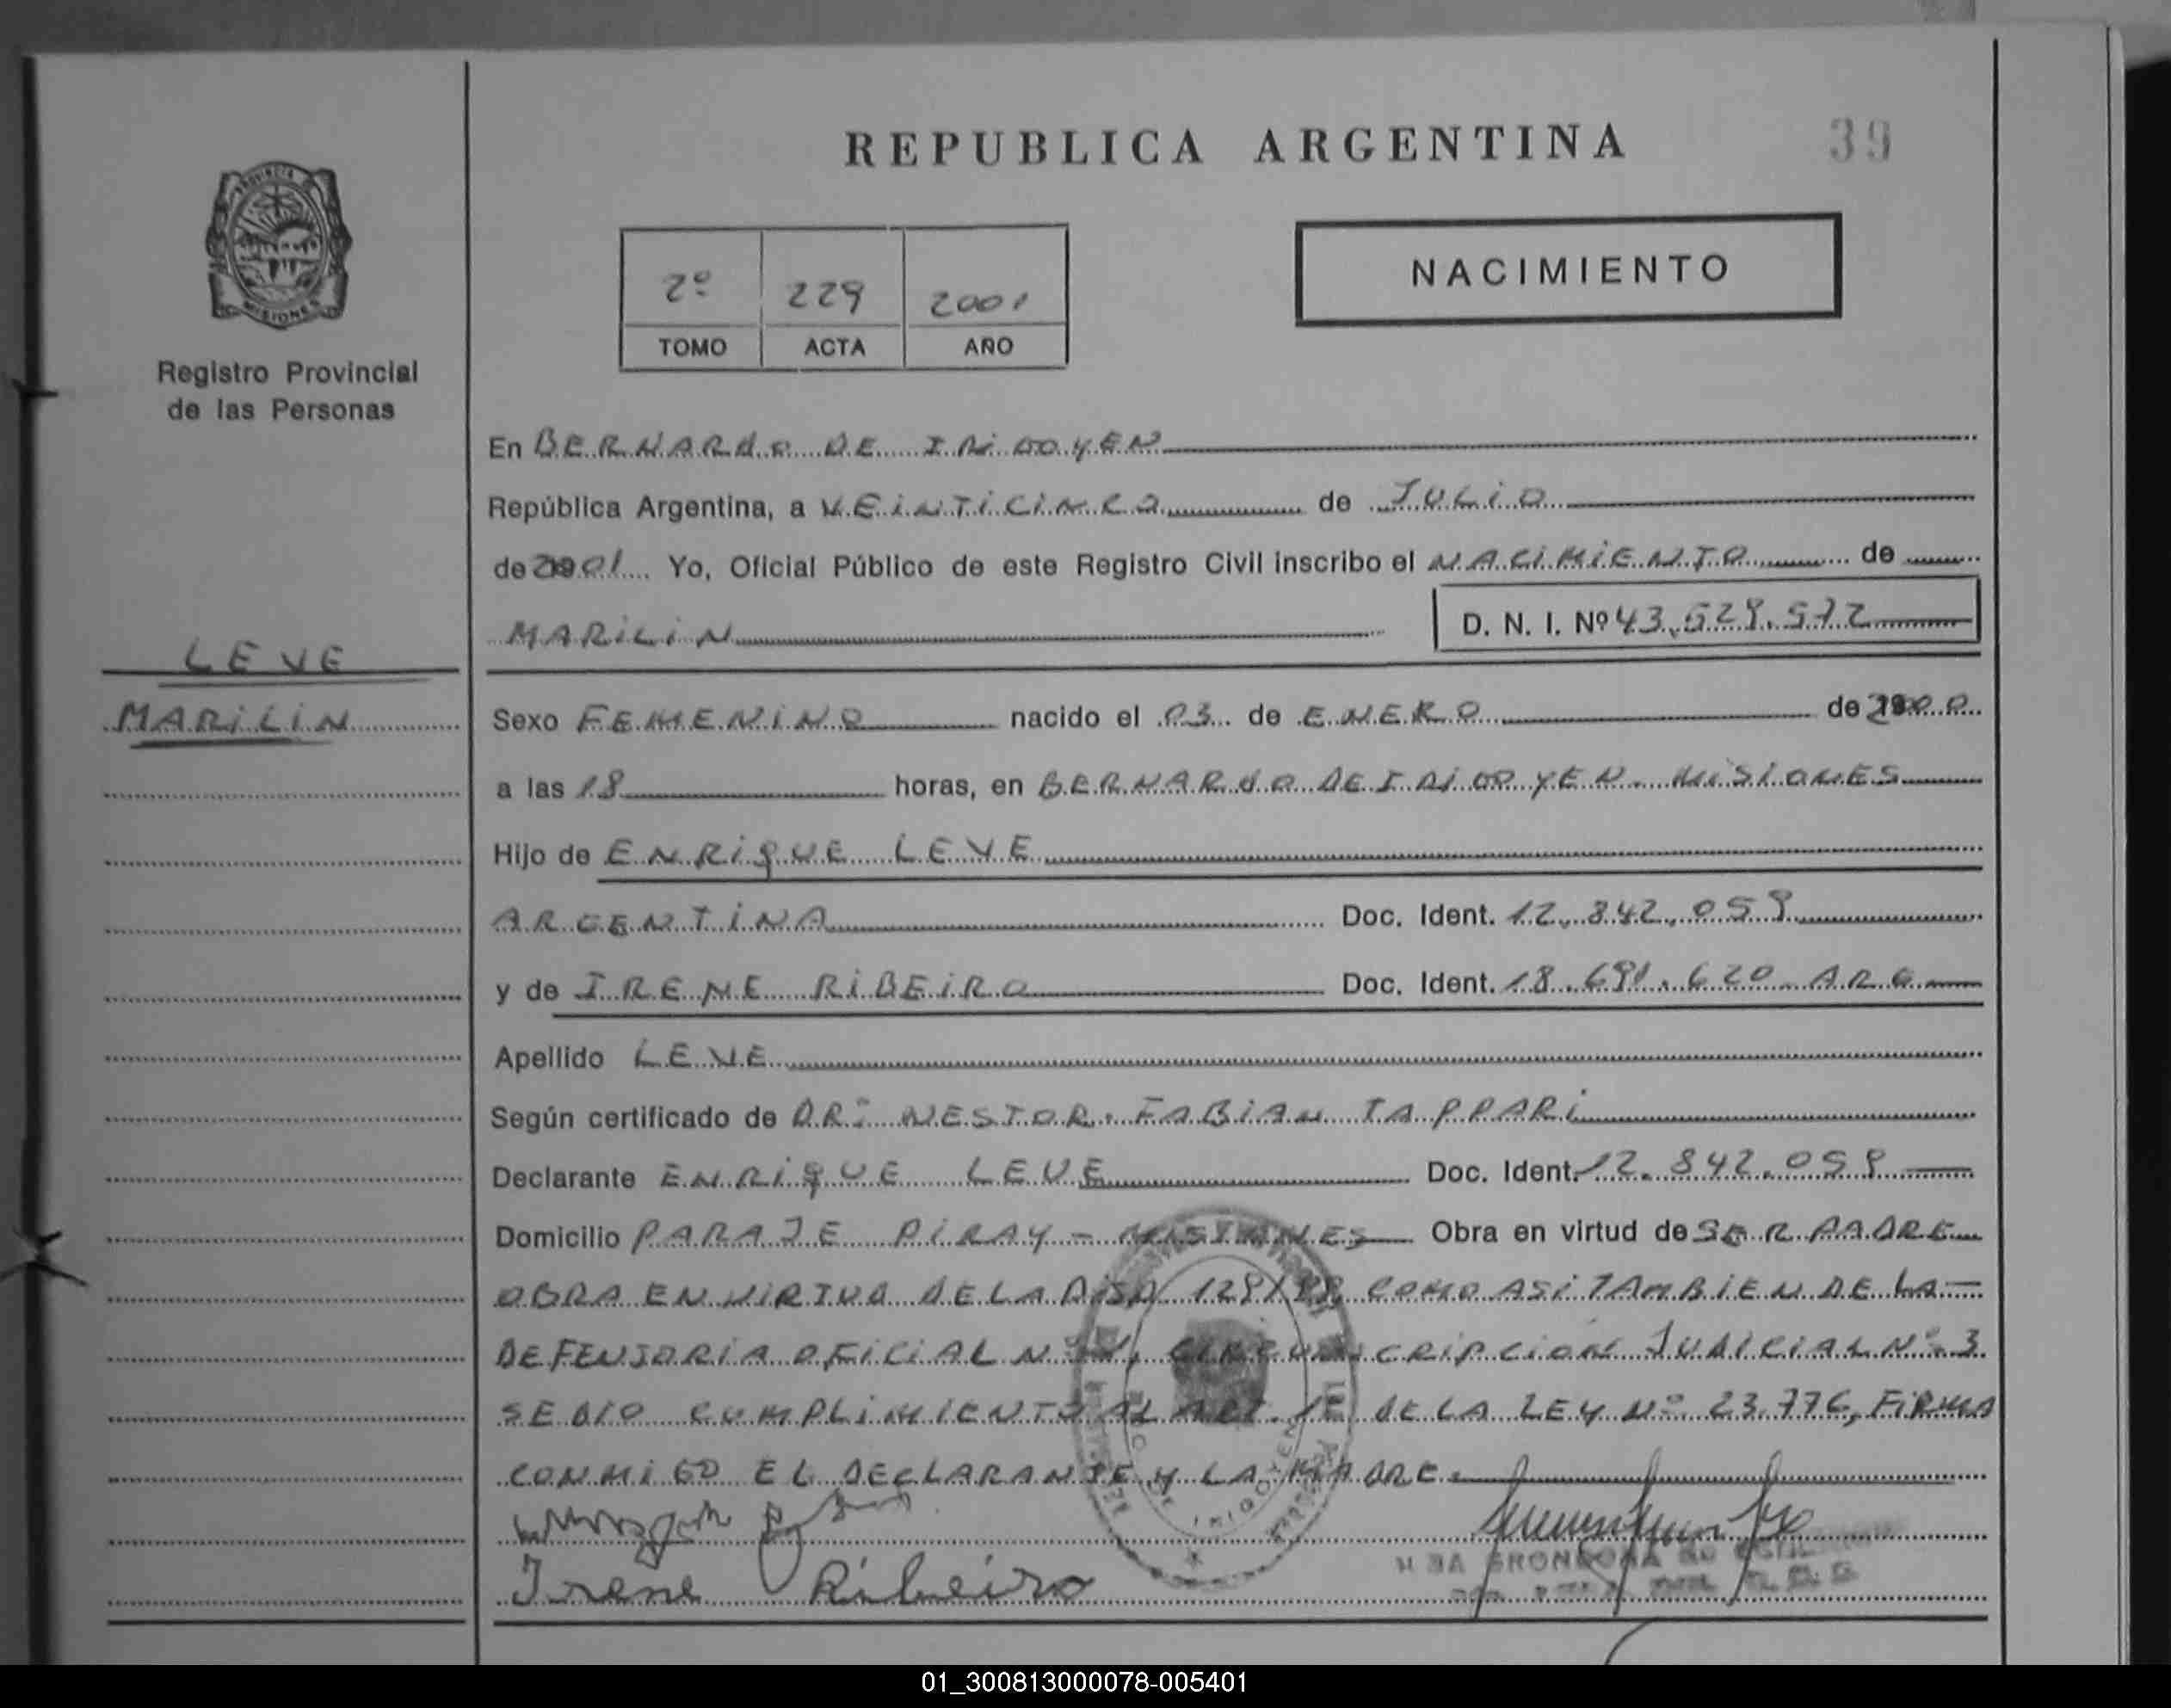 REPUBLICA ARGENTINA
39
PROVINCIA
MISIONES
Registro Provincial
de las Personas
2º 229 2001
TOMO ACTA AÑO
NACIMIENTO
En BERNARDO DE IRIGOYEN
República Argentina, a VEINTICINCO de JULIO
de 2001 Yo, Oficial Público de este Registro Civil inscribo el NACIMIENTO de
MARILIN D. N. I. Nº 43.529.572
LEVE
MARILIN
Sexo FEMENINO nacido el 03 de ENERO de 2000
a las 18 horas, en BERNARDO DE IRIGOYEN. MISIONES
Hijo de ENRIQUE LEVE
ARGENTINA Doc. Ident. 12.842.059
y de IRENE RIBEIRO Doc. Ident. 18.691.620 ARG
Apellido LEVE
Según certificado de DR: NESTOR FABIAN TAPPARI
Declarante ENRIQUE LEVE Doc. Ident. 12.842.059
Domicilio PARAJE PIRAY - MISIONES Obra en virtud de SER PADRE
OBRA EN VIRTUD DE LA DISP COMO ASI TAMBIEN DE LA
DEFENSORIA OFICIAL CIRCUNSCRIPCION JUDICIAL Nº 3
SE DIO CUMPLIMIENTO AL ART. DE LA LEY Nº 23.776, FIRMA
CONMIGO EL DECLARANTE Y LA MADRE.
Irene Ribeiro
01_300813000078-005401